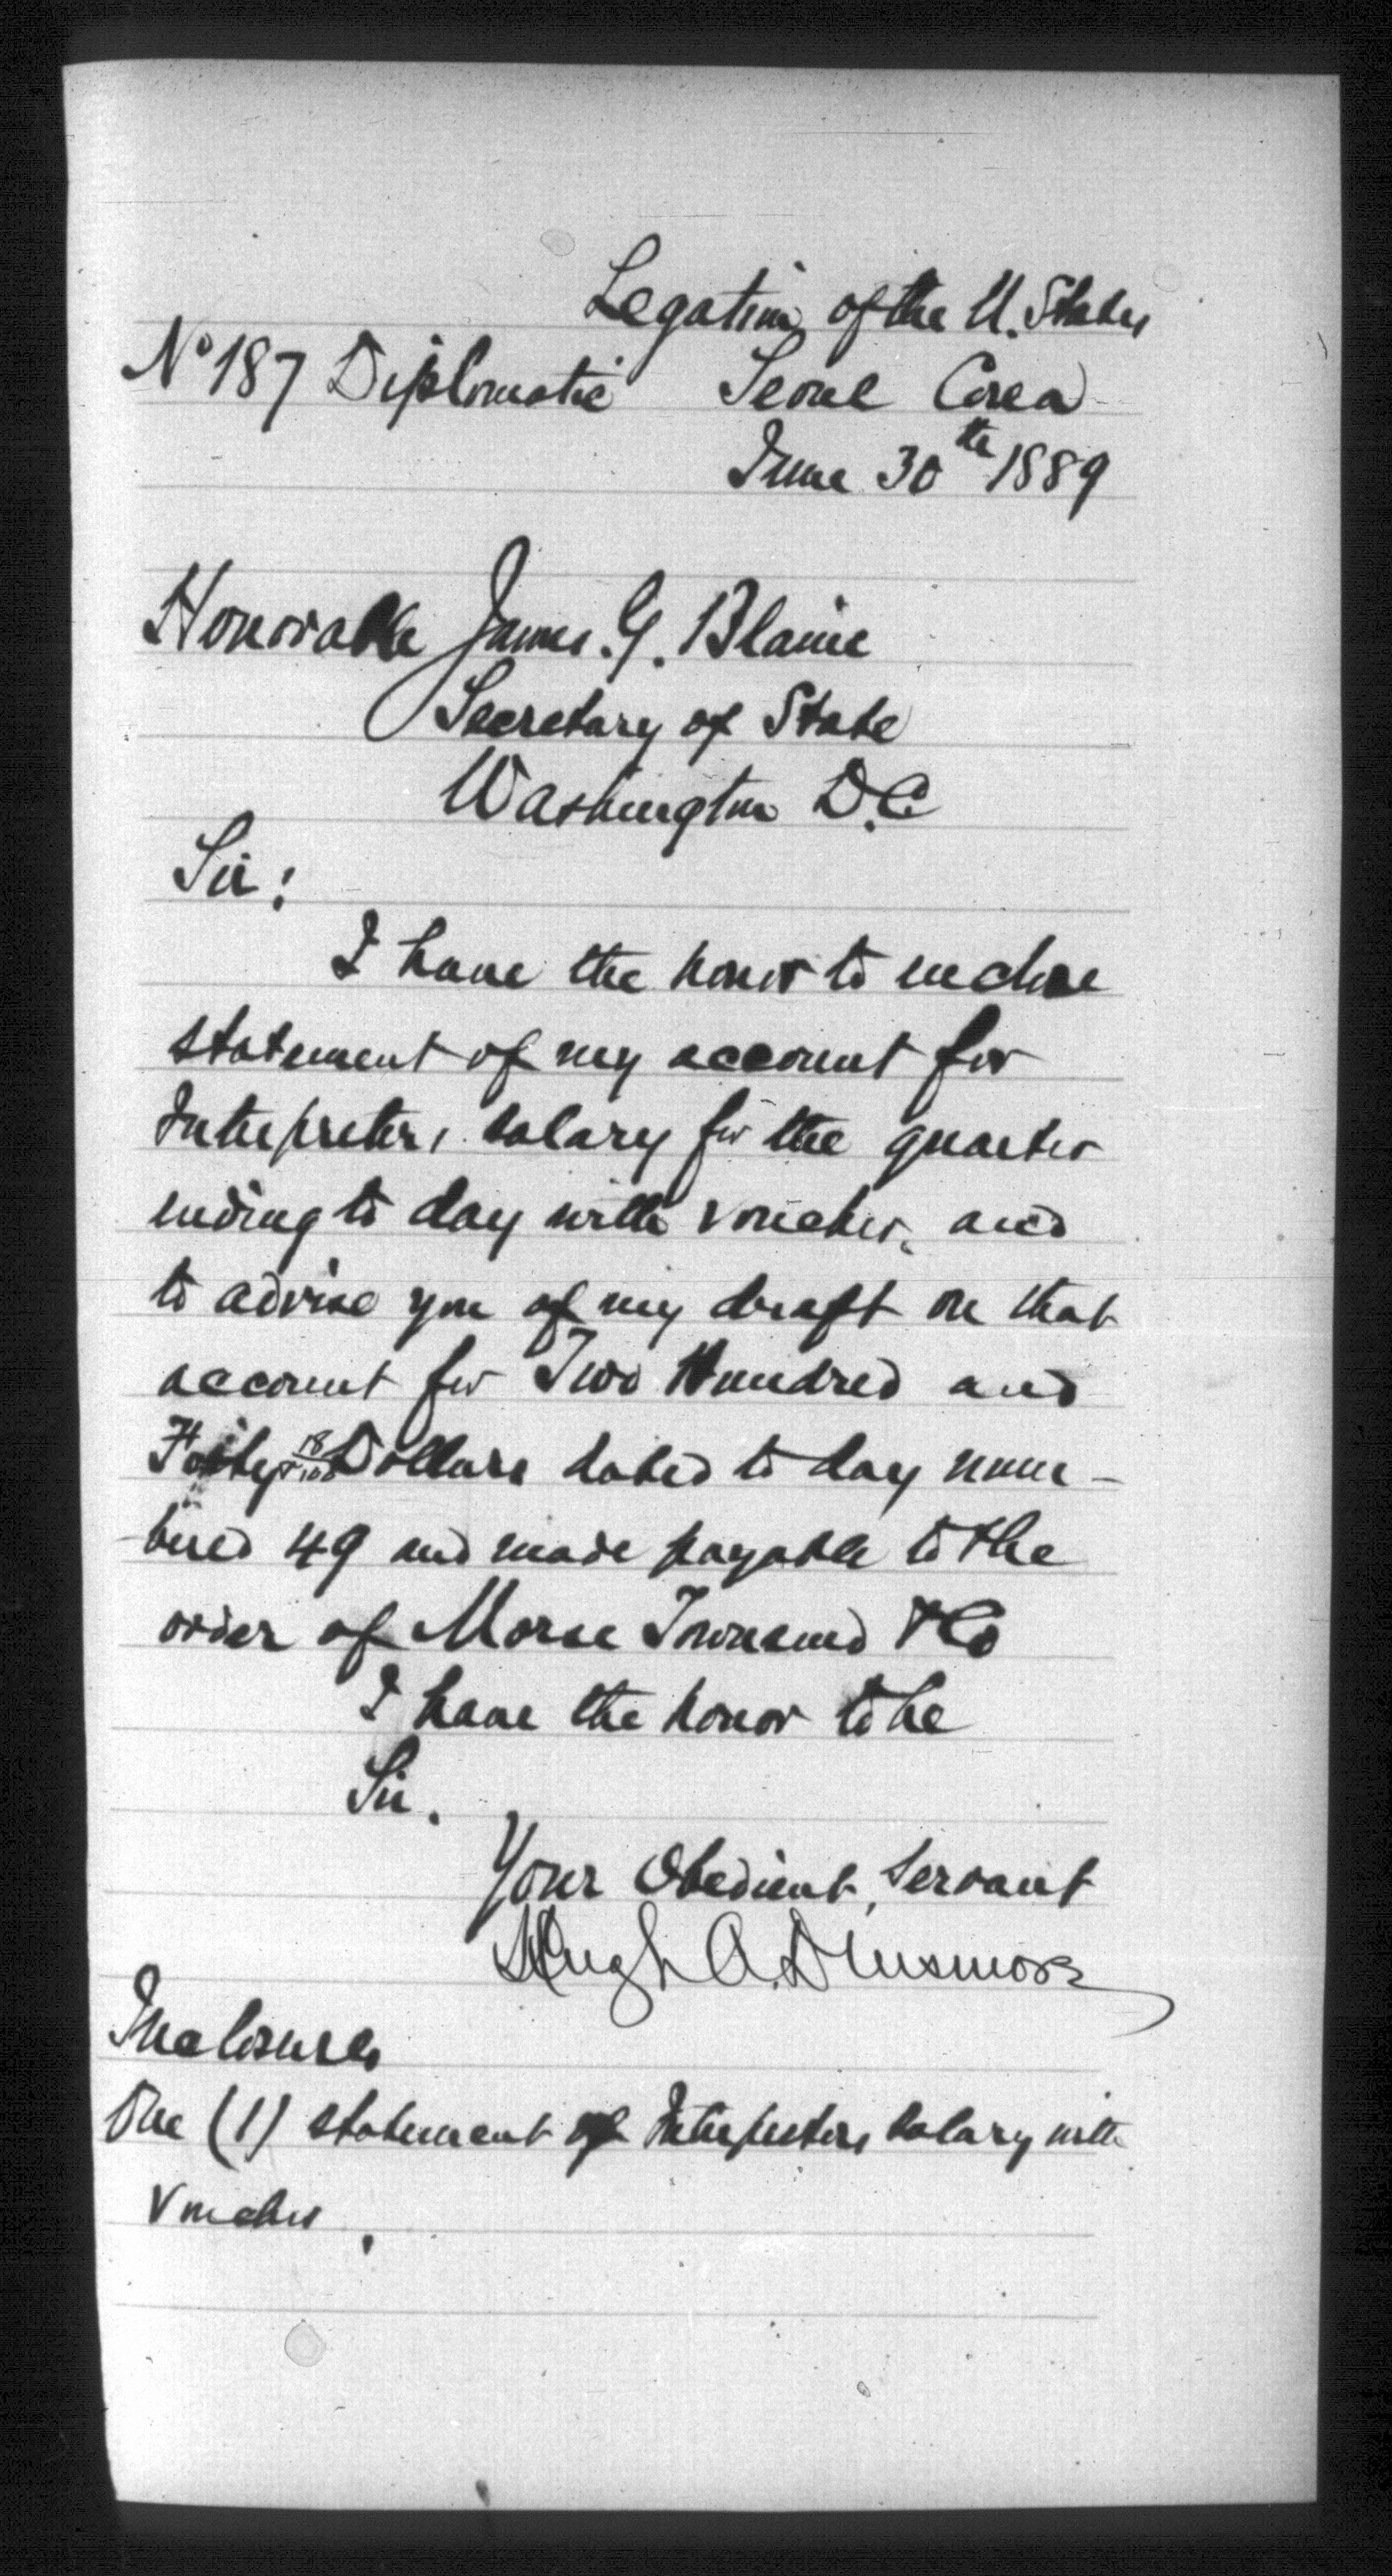 Legation of the U. States
No 187 Diplomatic Seoul Corea
June 30th 1889
Honorable James. G. Blaine
Secretary of State
Washington D.C
Sir:
I have the honor to inclose
statement of my account for
Interpreters salary for the quarter
ending to day with voucher, and
to advise you of my draft on that
account for Two Hundred and
18/100 Dollars dated to day num-
bered 49 and made payable to the
order of Morse Townsend & Co
I have the honor to be
Sir.
Your Obedient, Servant
Hugh A. Dinsmore
Inclosures
One (1) statement of Interpreters salary with
Voucher.